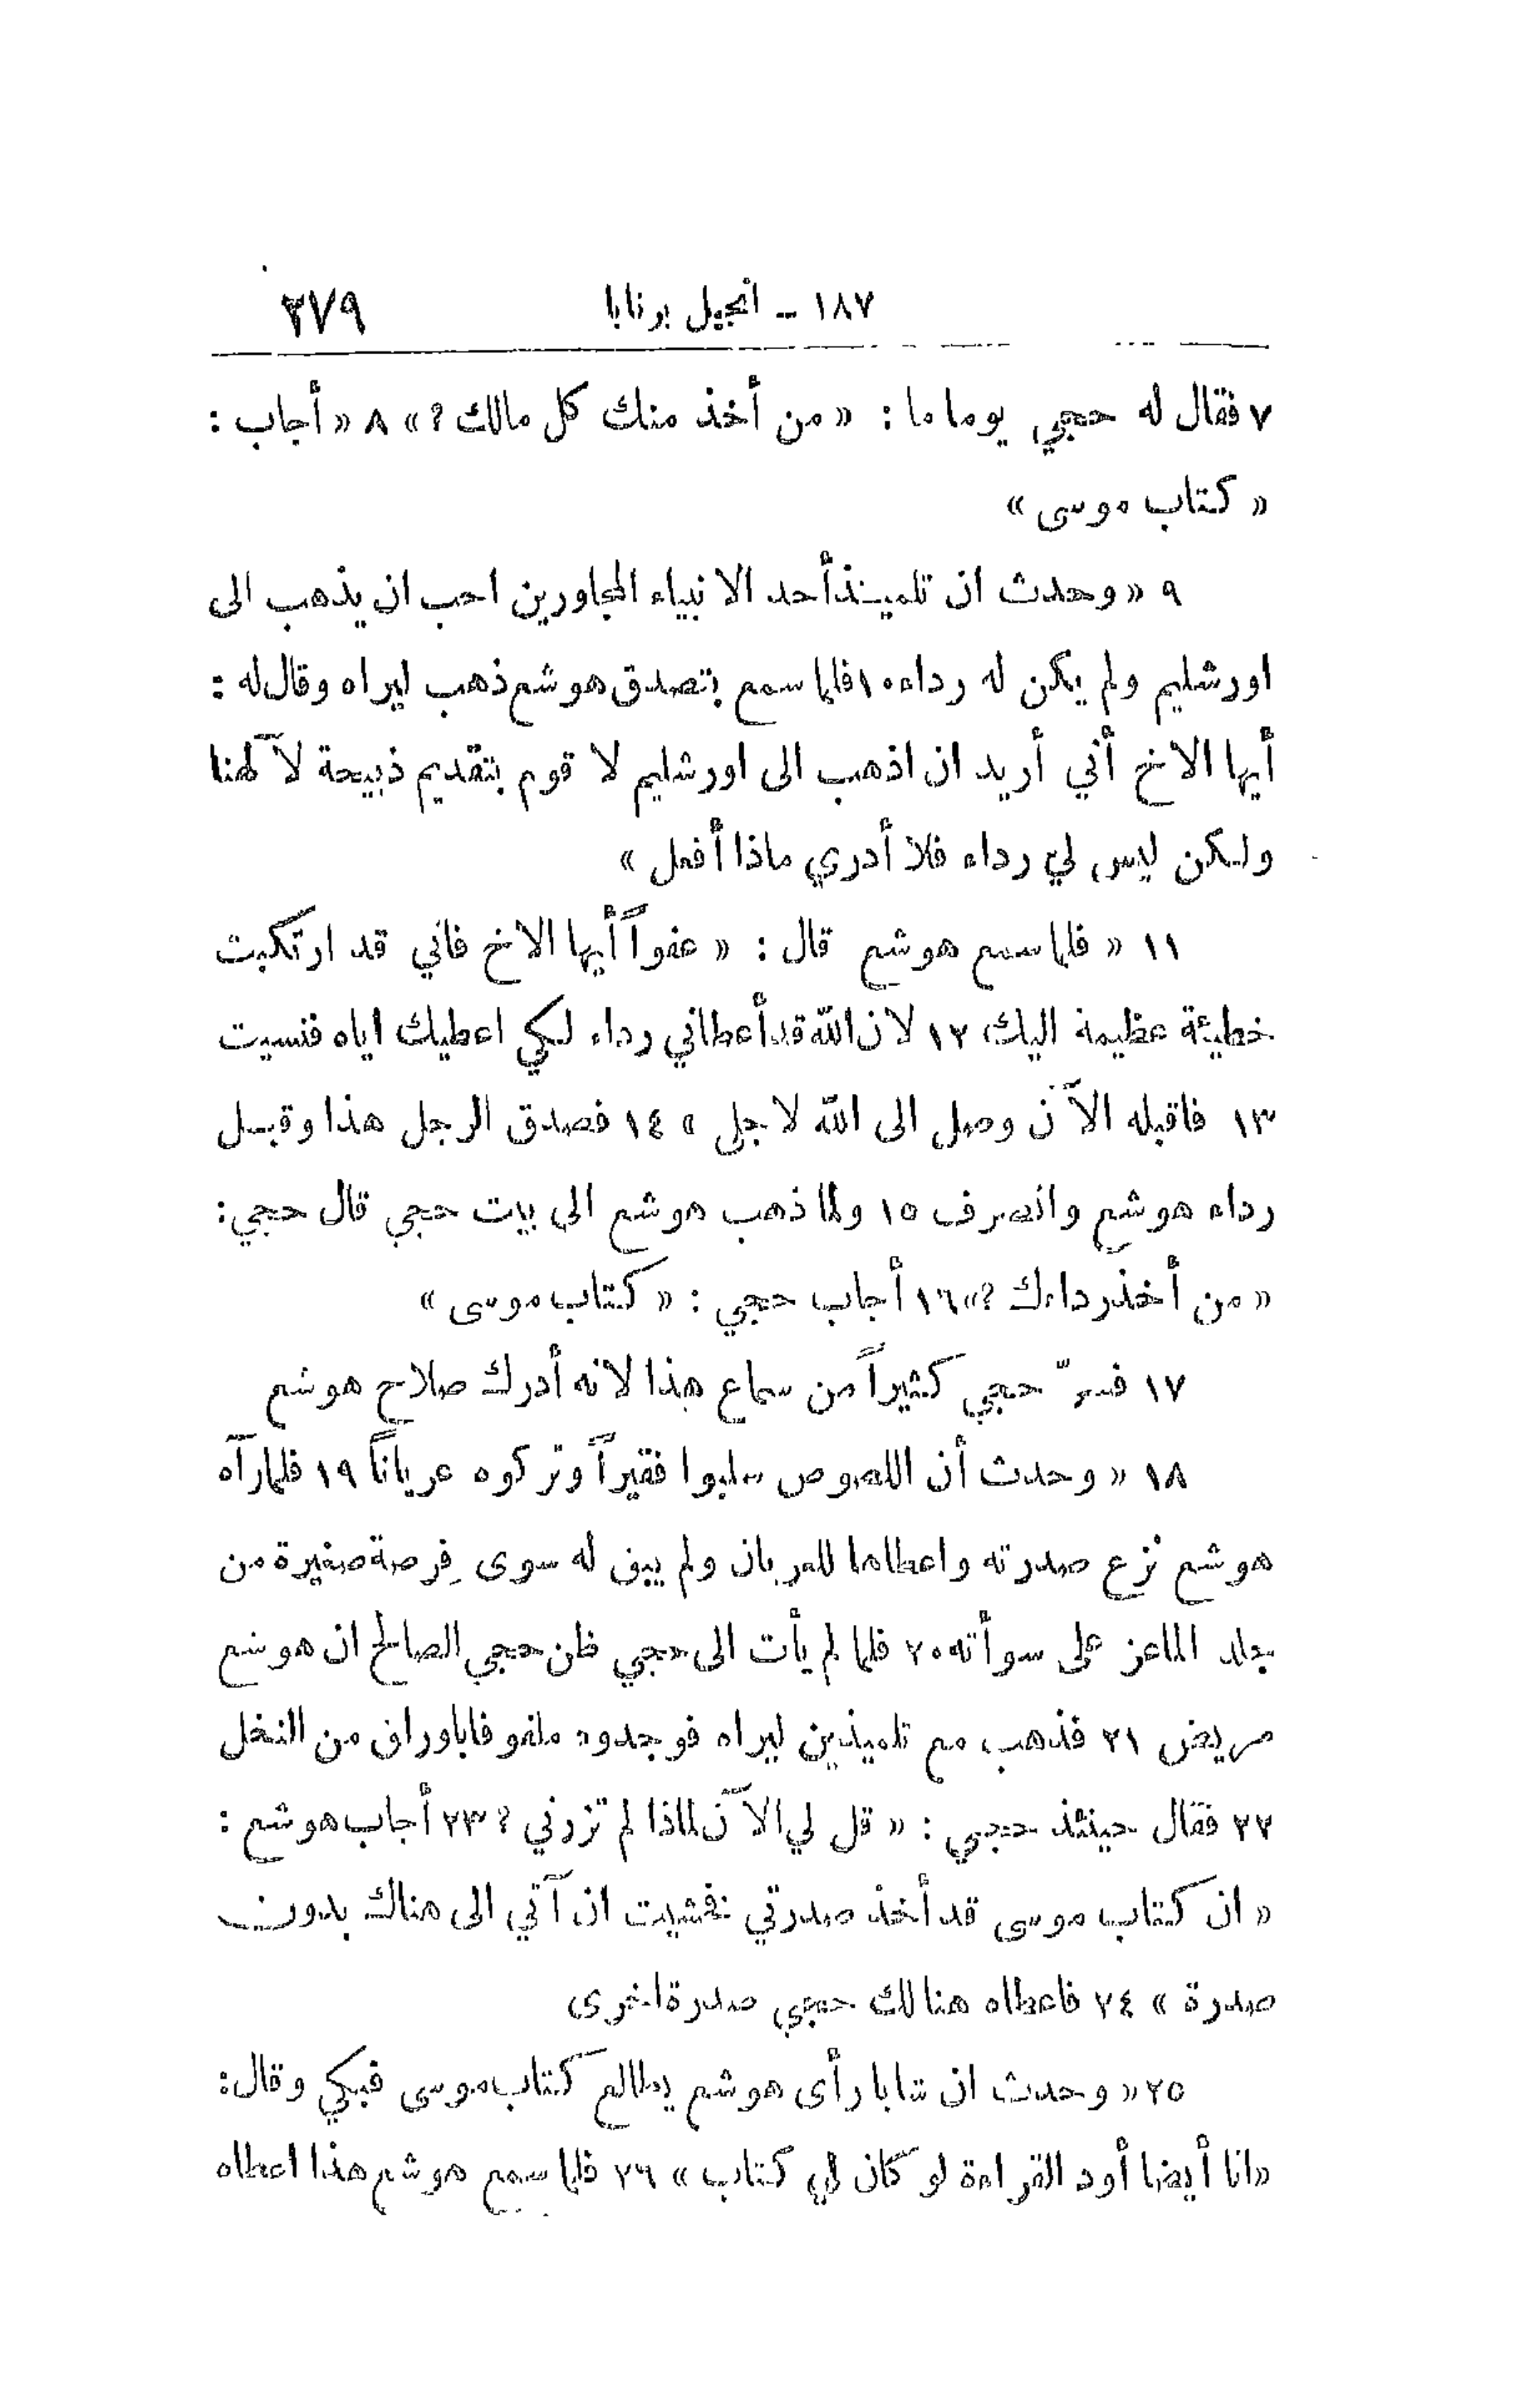 ١٨٧ – انجيل برنابا ٢٧٩
٧ فقال له حجي يوما ما : « من أخذ منك كل مالك ? » ٨ « أجاب :
« كتاب موسى »
٩ « وحدث ان تلميذ أحد الانبياء المجاورين احب ان يذهب الى
اورشليم ولم يكن له رداء ١٠ فلما سمع بتصدق هوشع ذهب ليراه وقال له :
أيها الاخ أني أريد ان اذهب الى اورشليم لا قوم بتقديم ذبيحة لآلهنا
ولكن ليس لي رداء فلا أدري ماذا أفعل »
١١ « فلما سمع هوشع قال : « عفواً أيها الاخ فاني قد ارتكبت
خطيئة عظيمة اليك ١٢ لان الله قد أعطاني رداء لكي اعطيك اياه فنسيت
١٣ فاقبله الآن وصل الى الله لاجلي » ١٤ فصدق الرجل هذا وقبل
رداء هوشع وانصرف ١٥ ولما ذهب هوشع الى بيت حجي قال حجي:
« من أخذ رداءك ?» ١٦ أجاب حجي : « كتاب موسى »
١٧ فسرّ حجي كثيراً من سماع هذا لانه أدرك صلاح هوشع
١٨ « وحدث أن اللصوص سلبوا فقيراً وتركوه عرياناً ١٩ فلما رآه
هوشع نزع صدرته واعطاها للعريان ولم يبق له سوى فِرصة صغيرة من
جلد الماعز على سوأته ٢٠ فلما لم يأت الى حجي ظن حجي الصالح ان هوشع
مريض ٢١ فذهب مع تلميذين ليراه فوجدوه ملفوفا باوراق من النخل
٢٢ فقال حينئذ حجي : « قل لي الآن لماذا لم تزرني ? ٢٣ أجاب هوشع :
« ان كتاب موسى قد أخذ صدرتي فخشيت ان آتي الى هناك بدون
صدرة » ٢٤ فاعطاه هنالك حجي صدرة اخرى
٢٥ « وحدث ان شابا رأى هوشع يطالع كتاب موسى فبكي وقال:
«انا أيضا أود القراءة لو كان لي كتاب » ٢٦ فلما سمع هوشع هذا اعطاه